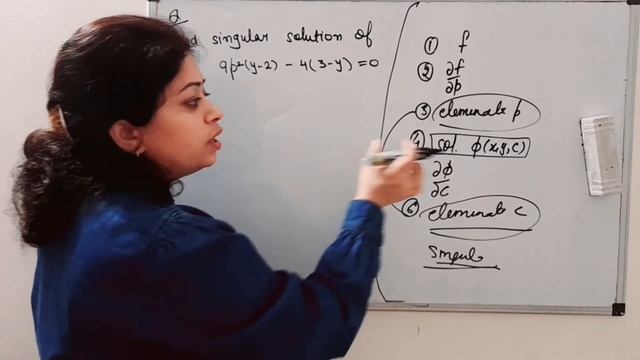 Q
singular solution of
9p²(y-2) - 4(3-y) = 0
① f
② ∂f
∂p
③ eleminate p
④ sol. ϕ(x,y,c)
∂ϕ
∂c
⑥ eleminate c